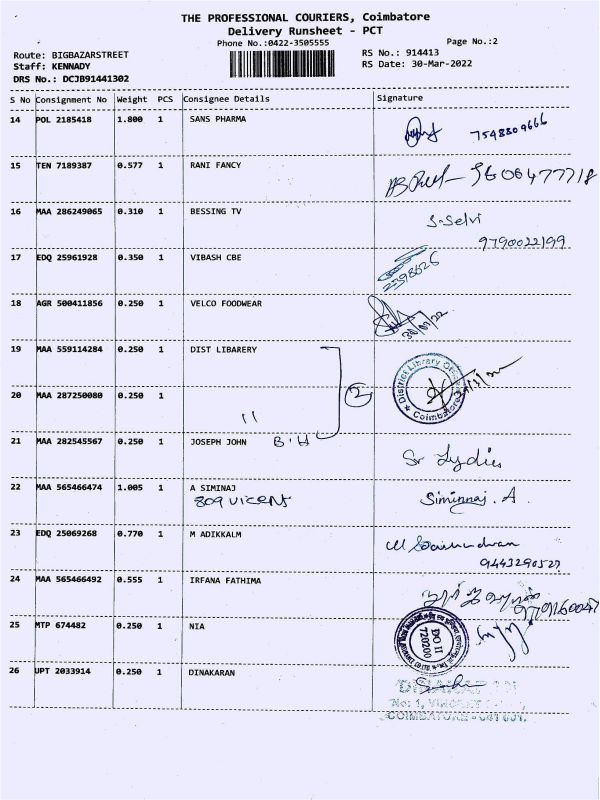 THE PROFESSIONAL COURIERS, Coimbatore
Delivery Runsheet - PCT
Phone No.:0422-3505555
Page No.:2
Route: BIGBAZARSTREET
RS No.: 914413
Staff: KENNADY
RS Date: 30-Mar-2022
DRS No.: DCJB91441302
S No Consignment No Weight PCS Consignee Details Signature
14 POL 2185418 1.800 1 SANS PHARMA
7548809666
15 TEN 7189387 0.577 1 RANI FANCY
16 MAA 286249065 0.310 1 BESSING TV S-Selvi
9790022199
17 EDQ 25961928 0.350 1 VIBASH CBE
2398626
18 AGR 500411856 0.250 1 VELCO FOODWEAR
30/03/22
19 MAA 559114284 0.250 1 DIST LIBARERY
District Library Office
Coimbatore
20 MAA 287250080 0.250 1
11
2
21 MAA 282545567 0.250 1 JOSEPH JOHN B.H
Sr Lydia
22 MAA 565466474 1.005 1 A SIMINAJ
809 VICENT Siminnaj. A
23 EDQ 25069268 0.770 1 M ADIKKALM
9443290527
24 MAA 565466492 0.555 1 IRFANA FATHIMA
9791160047
25 MTP 674482 0.250 1 NIA
DO II
720200
26 UPT 2033914 0.250 1 DINAKARAN
DINAKARAN
No: 1, VINCENT
COIMBATORE - 641 001.